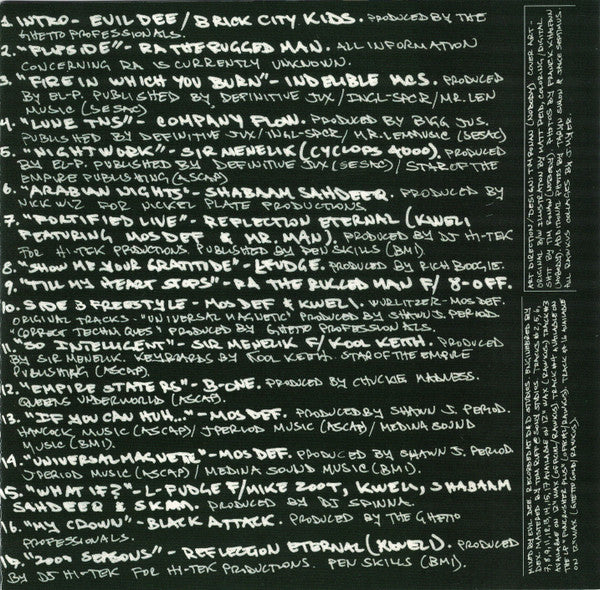 1. INTRO- EVIL DEE/BRICK CITY KIDS. PRODUCED BY THE
GHETTO PROFESSIONALS.
2. "FLIPSIDE"- RA THE RUGGED MAN. ALL INFORMATION
CONCERNING RA IS CURRENTLY UNKNOWN.
3. "FIRE IN WHICH YOU BURN"- INDELIBLE MCS. PRODUCED
BY EL-P. PUBLISHED BY DEFINITIVE JUX/INGL-SPCR/MR.LEN
MUSIC (SESAC)
4. "LUNE TNS"- COMPANY FLOW. PRODUCED BY BIGG JUS.
PUBLISHED BY DEFINITIVE JUX/INGL-SPCR/ MR. LENMUSIC (SESAC)
5. "NIGHTWORK"- SIR MENELIK (CYCLOPS 4000). PRODUCED
BY EL-P. PUBLISHED BY DEFINITIVE JUX (SESAC)/ STAR OF THE
EMPIRE PUBLISHING (ASCAP)
6. "ARABIAN NIGHTS"- SHABAAM SAHDEEQ. PRODUCED BY
NICK WIZ FOR NICKEL PLATE PRODUCTIONS
7. "FORTIFIED LIVE"- REFLECTION ETERNAL (KWELI
FEATURING MOS DEF & MR. MAN). PRODUCED BY DJ HI-TEK
FOR HI-TEK PRODUCTIONS. PUBLISHED BY PEN SKILLS (BMI)
8. "SHOW ME YOUR GRATTIDE"- L-FUDGE. PRODUCED BY RICH BOOGIE.
9. "TILL MY HEART STOPS"- RA THE RUGGED MAN F/ 8-OFF.
10. SIDE 3 FREESTYLE- MOS DEF & KWELI. WURLITZER- MOS DEF.
ORIGINAL TRACKS- "UNIVERSAL MAGNETIC" PRODUCED BY SHAWN J. PERIOD.
"CORRECT TECHNIQUES" PRODUCED BY GHETTO PROFESSIONALS.
11. "SO INTELLIGENT"- SIR MENELIK F/ KOOL KEITH. PRODUCED
BY SIR MENELIK. KEYBOARDS BY KOOL KEITH. STAR OF THE EMPIRE
PUBLISHING (ASCAP)
12. "EMPIRE STATERS"- B-ONE. PRODUCED BY CHUCKIE MADNESS.
QUEENS UNDERWORLD (ASCAP).
13. "IF YOU CAN HUH..."- MOS DEF. PRODUCED BY SHAWN J. PERIOD.
HANCOCK MUSIC (ASCAP)/JPERIOD MUSIC (ASCAP)/MEDINA SOUND
MUSIC (BMI).
14. "UNIVERSAL MAGNETIC"- MOS DEF. PRODUCED BY SHAWN J. PERIOD
JPERIOD MUSIC (ASCAP)/ MEDINA SOUND MUSIC (BMI).
15. "WHAT IF?"- L-FUDGE F/MIKE ZOOT, KWELI, SHABAAM
SAHDEEQ & SKAM. PRODUCED BY DJ SPINNA.
16. "MY CROWN"- BLACK ATTACK. PRODUCED BY THE GHETTO
PROFESSIONALS.
17. "2000 SEASONS"- REFLECTION ETERNAL (KWELI). PRODUCED
BY DJ HI-TEK FOR HI-TEK PRODUCTIONS. PEN SKILLS (BMI).
ART DIRECTION/DESIGN: TIM RONAN (NOBODY) COVER ART-
ORIGINAL B/W ILLUSTRATION BY MATT REID, COLORING/DIGITAL
ALL RAWKUS COLLAGES BY J. MYER
MIXED BY EVIL DEE. RECORDED AT D&D STUDIOS. ENGINEERED BY